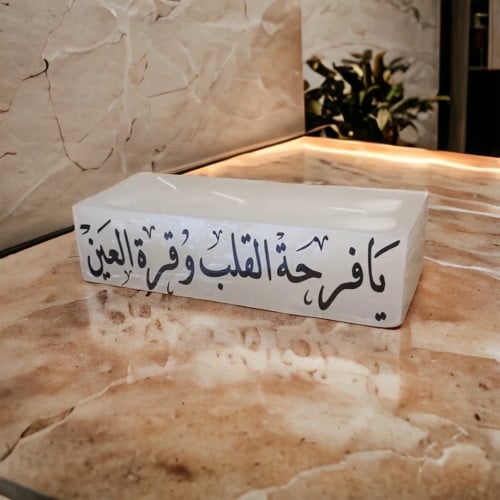 يَا فرحة القلب وقرة العين